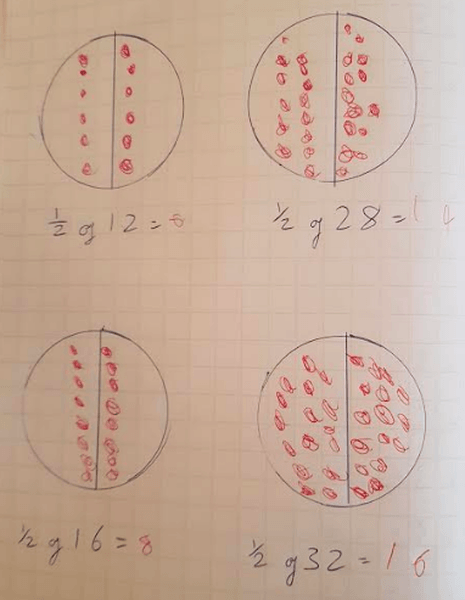 ½ of 12 = 6
½ of 28 = 14
½ of 16 = 8
½ of 32 = 16